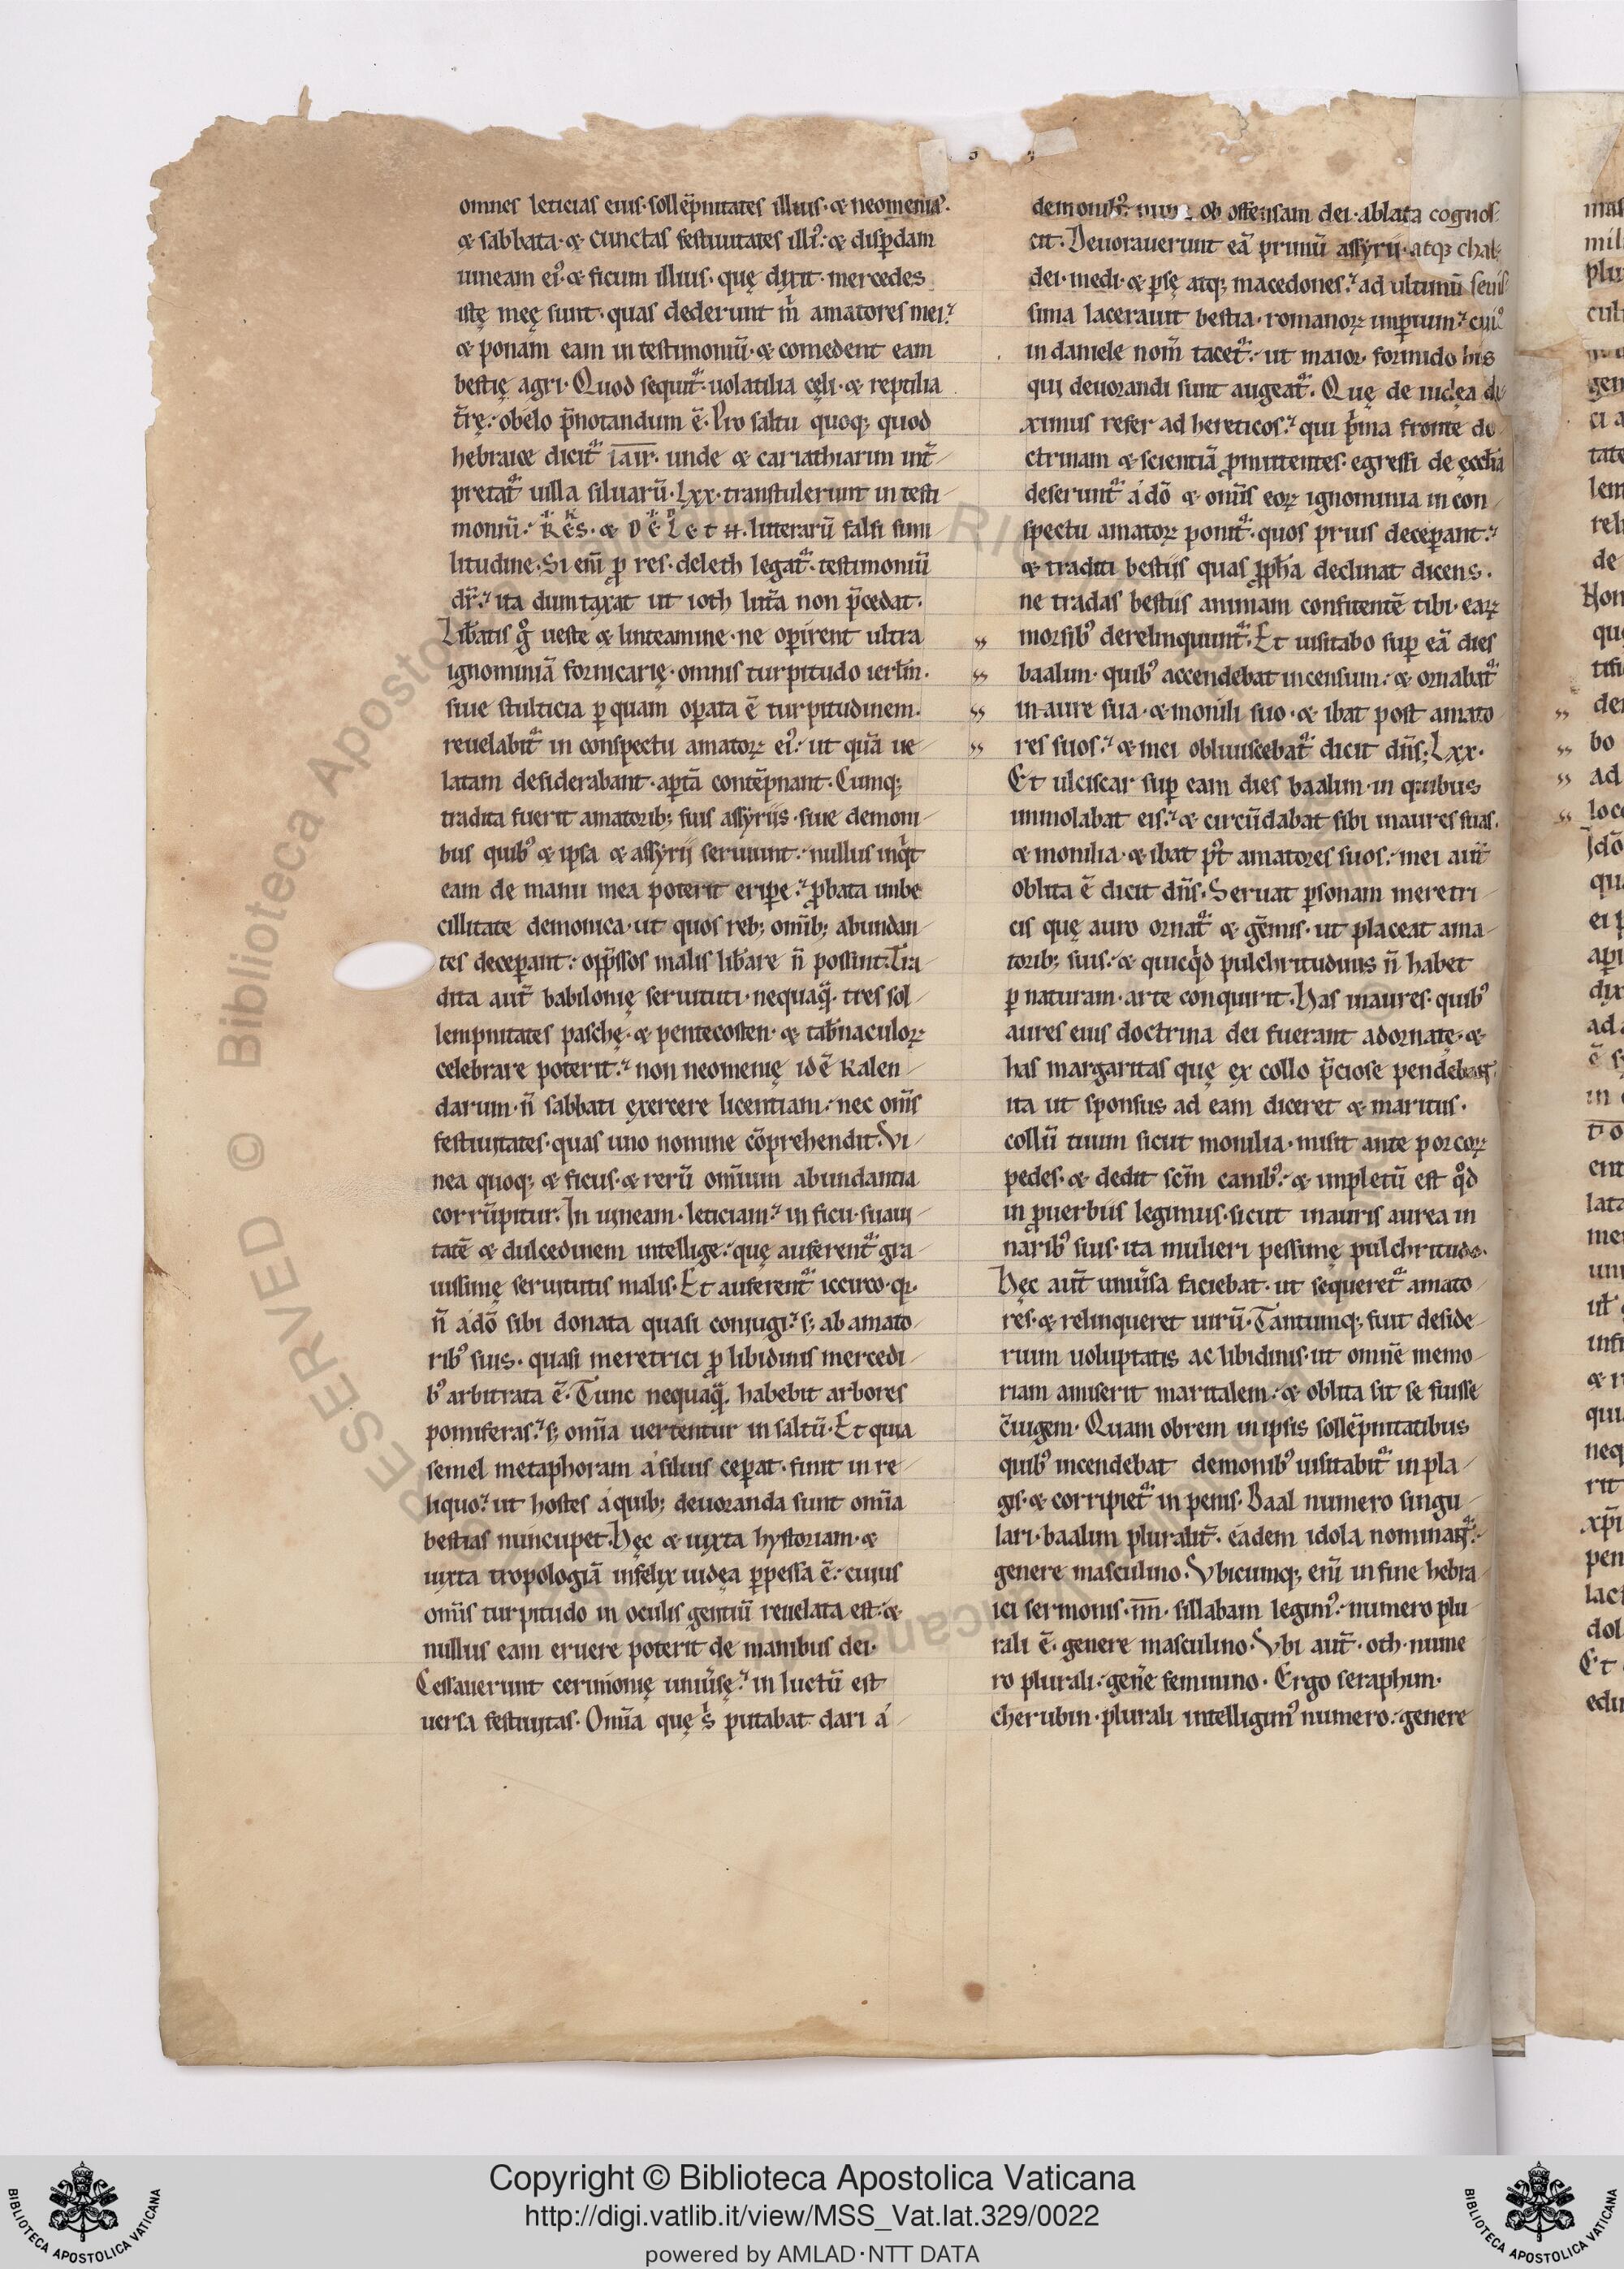 omnes leticias eius·sollēpnitates illius·⁊ neomenias᾽.
⁊ sabbata·⁊ cunctas festiuitates illi᾽: ⁊ disꝑdam
uineam ei᾽·⁊ ficum illius·quę dixit·mercedes
istę meę sunt·quas dederunt m̄ amatores mei:
⁊ ponam eam in testimoniū·⁊ comedent eam
bestię agri·Quod sequit᷑·uolatilia cęli·⁊ reptilia
t̄rę: obelo p̄notandum ē·Pro saltu quoq; quod
hebraice dicit᷑ iair·unde ⁊ cariathiarim int̄
pretat᷑ uilla siluarū·Lxx·transtulerunt in testi
moniū: Res·⁊ Deleth·litterarū falsi simi
litudine·Si eni̅ ꝓ res·deleth legat᷑·testimoniū
dr̄: ita dumtaxat ut ioth litt̄a non p̄cedat·
Lib̄atis g̊ ueste ⁊ linteamine·ne oꝑirent ultra
ignominiā fornicarię·omnis turpitudo ierl̄m·
siue stulticia ꝑ quam oꝑata ē turpitudinem·
reuelabit᷑ in conspectu amatoꝝ ei᾽: ut quā ue
latam desiderabant·aꝑtā contēpnant·Cumq;
tradita fuerit amatorib; suis assyriis·siue demoni
bus quib᾽ ⁊ ipsa ⁊ assyrii seruiunt: nullus inq̇t
eam de manu mea poterit eriꝑe: ꝓbata imbe
cillitate demonica·ut quos reb; om̄ib; abundan
tes deceꝑant: opp̄ssos malis lib̄are n̄ possint·Tra
dita aut̄ babilonię seruituti·nequaq̄·tres sol
lempnitates paschę·⁊ pentecosten·⁊ tab̄naculoꝝ
celebrare poterit: non neomenię id ē kalen
darum·n̄ sabbati exercere licentiam: nec om̄s
festiuitates·quas uno nomine cōprehendit·Vi
nea quoq; ⁊ ficus·⁊ rerū om̄ium abundantia
corrūpitur·In uineam·leticiam: in ficu·suaui
tatē ⁊ dulcedinem intellige: quę auferent᷑ gra
uissimę seruitutis malis·Et auferent᷑ iccirco·q̄·
n̄ a dō sibi donata quasi coniugi: s; ab amato
rib᾽ suis·quasi meretrici ꝓ libidinis mercedi
b᾽ arbitrata ē·Tunc nequaq̄·habebit arbores
pomiferas: s; om̄ia uertentur in saltū·Et quia
semel metaphoram a siluis ceꝑat·finit in re
liquo: ut hostes a quib; deuoranda sunt om̄ia
bestias nuncupet·Hęc ⁊ iuxta hystoriam·⁊
iuxta tropologiā infelix iudęa ꝑpessa ē: cuius
om̄is turpitudo in oculis gentiū reuelata est: ⁊
nullus eam eruere poterit de manibus dei·
Cessauerunt cerimonię uniūsę: in luctū est
uersa festiuitas·Om̄ia quę s̄ putabat dari a
demonib᾽: nunc ob offensam dei·ablata cognos
cit·Deuorauerunt eā primū assyrii·atq; chal
dei·medi·⁊ ꝑsę atq; macedones: ad ultimū seuis
sima lacerauit bestia·romanoꝝ imꝑium: cui᾽
in daniele nom̄ tacet᷑: ut maior formido his
qui deuorandi sunt augeat᷑·Quę de iudęa di
ximus refer ad hereticos: qui p̄ma fronte do
ctrinam ⁊ scientiā ꝓmittentes·egressi de eccl̄ia
deserunt᷑ a dō ⁊ om̄is eoꝝ ignominia in con
spectu amatoꝝ ponit᷑·quos prius deceꝑant:
⁊ traditi bestiis quas ꝓph̄a declinat dicens·
ne tradas bestiis animam confitentē tibi·eaꝝ
morsib᾽ derelinquunt᷑·Et uisitabo suꝑ eā dies
baalim·quib᾽ accendebat incensum: ⁊ ornabat᷑
in aure sua·⁊ monili suo·⁊ ibat post amato
res suos: ⁊ mei obliuiscebat᷑ dicit dn̄s; Lxx·
Et ulciscar suꝑ eam dies baalim·in quibus
immolabat eis: ⁊ circūdabat sibi inaures suas·
⁊ monilia·⁊ ibat p᾽t amatores suos: mei aut̄
oblita ē dicit dn̄s·Seruat ꝑsonam meretri
cis quę auro ornat᷑ ⁊ gēmis·ut placeat ama
torib; suis: ⁊ quicq̇d pulchritudinis n̄ habet
ꝑ naturam·arte conquirit·Has inaures·quib᾽
aures eius doctrina dei fuerant adornatę·⁊
has margaritas quę ex collo p̄ciose pendebant
ita ut sponsus ad eam diceret ⁊ maritus·
collū tuum sicut monilia·misit ante porcoꝝ
pedes·⁊ dedit sc̄m canib᾽: ⁊ impletū est q̊d
in ꝓuerbiis legimus·sicut inauris aurea in
narib᾽ suis·ita mulieri pessimę pulchritudo·
Hęc aut̄ uniūsa faciebat·ut sequeret᷑ amato
res·⁊ relinqueret uirū·Tantumq; fuit deside
rium uoluptatis ac libidinis·ut omnē memo
riam amiserit maritalem: ⁊ oblita sit se fuisse
c̄iugem·Quam obrem in ipsis sollēpnitatibus
quib᾽ incendebat demonib᾽ uisitabit᷑ in pla
gis·⁊ corripiet᷑ in penis·Baal numero singu
lari·baalim pluralit̄·eadem idola nominant᷑:
genere masculino·Vbicumq; eni̅ in fine hebra
ici sermonis·im·sillabam legim᾽: numero plu
rali ē·genere masculino·Vbi aut̄·oth·nume
ro plurali: gen̄e feminino·Ergo seraphim·
cherubin·plurali intelligim᾽ numero: genere
Copyright © Biblioteca Apostolica Vaticana
http://digi.vatlib.it/view/MSS_Vat.lat.329/0022
powered by AMLAD·NTT DATA
BIBLIOTECA APOSTOLICA VATICANA
BIBLIOTECA APOSTOLICA VATICANA